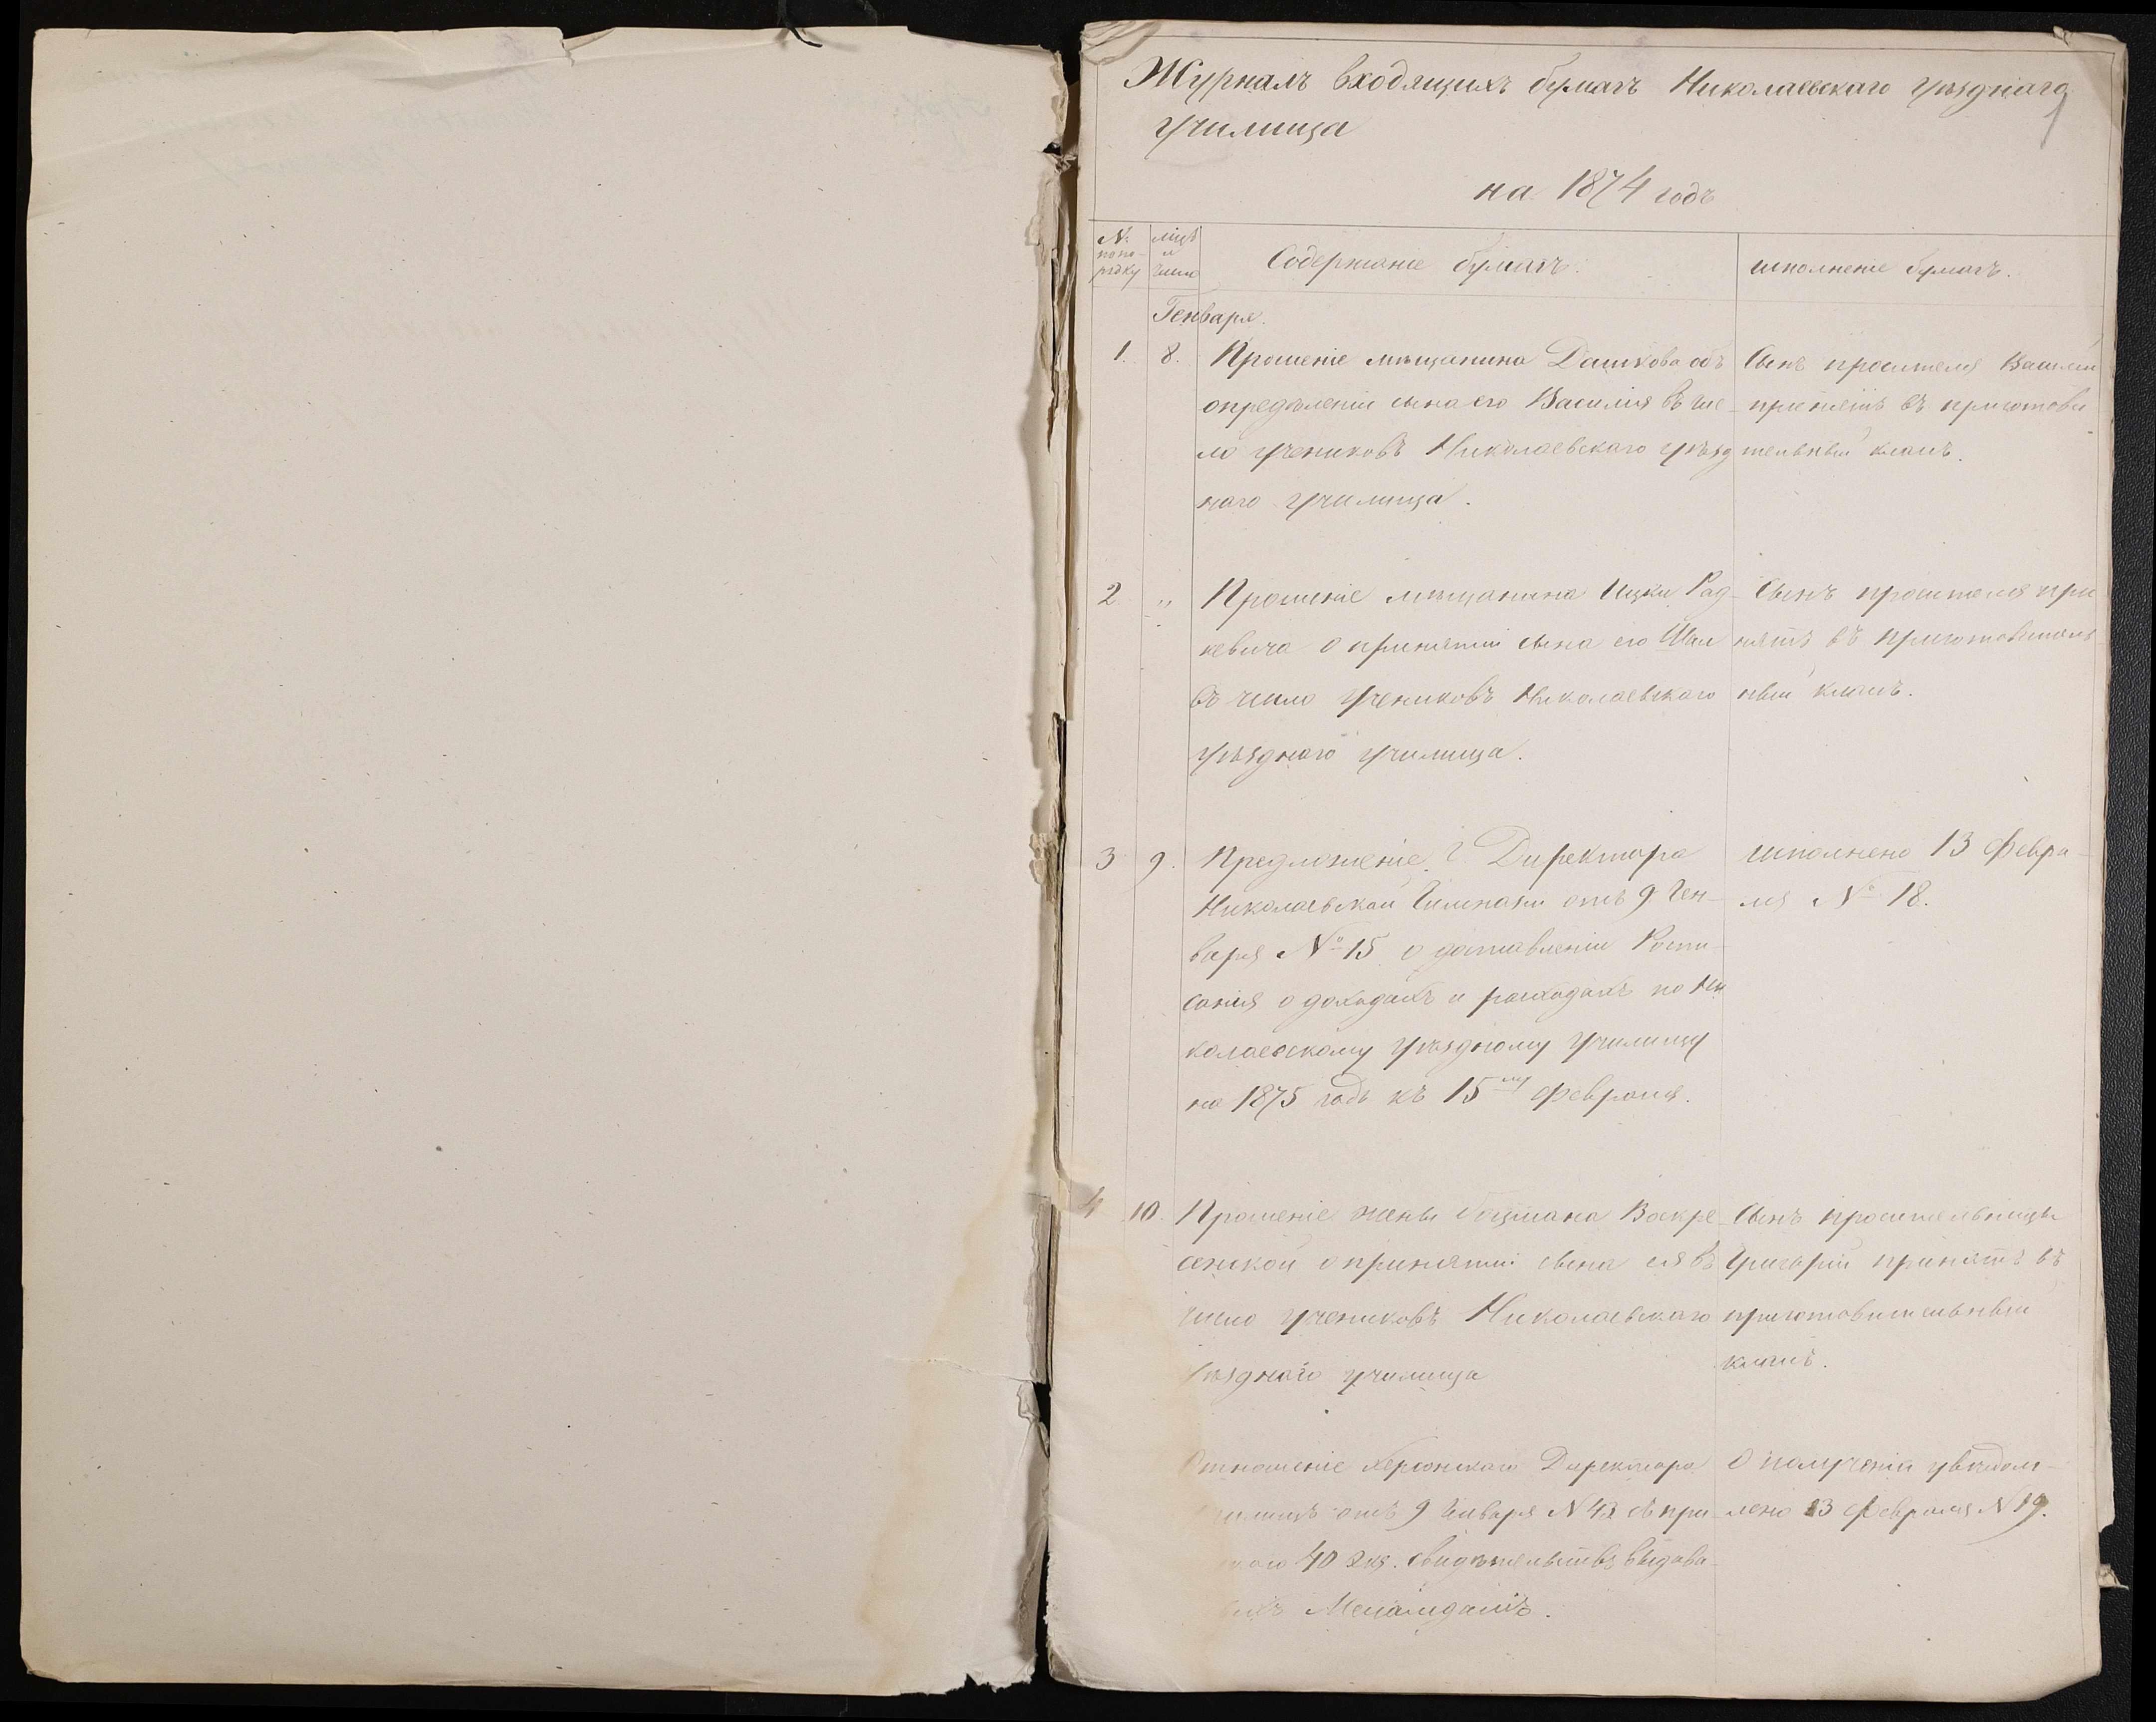 Журналъ входящихъ бумагъ Николаевскаго уѣзднаго
училища
на 1874 годъ
№ по по-рядку
мѣс. и число
Содержаніе бумагъ.
исполненіе бумагъ.
Генваря.
1. 8. Прошеніе мѣщанина Дашкова объ
опредѣленіи сына его Василія въ чис-
ло учениковъ Николаевскаго уѣзд
наго училища.
Сынъ просителя Василій
принятъ въ приготови
тельный классъ.
2 " Прошеніе мѣщанина Ицки Рад-
кевича о принятіи сына его
въ число учениковъ Николаевскаго
уѣзднаго училища.
Сынъ просителя при
нятъ въ приготовитель
ный классъ.
3 9. Предложеніе г. Директора
Николаевской Гимназіи отъ 9 Ген-
варя № 15 о доставленіи Роспи-
санія о доходахъ и расходахъ по Ни
колаевскому уѣздному училищу
на 1875 годъ къ 15му февраля.
исполнено 13 Февра-
ля № 18.
4 10. Прошеніе жены боцмана Воскре-
сенской о принятіи сына ея въ
число учениковъ Николаевскаго
уѣзднаго училища
Сынъ просительницы
Григорій принятъ въ
приготовительный
классъ.
Отношеніе Херсонскаго Директора
училищъ отъ 9 Января N 43 съ при-
40 экз. свидѣтельствъ выдава-
Меламдамъ.
О полученіи увѣдом-
лено 13 февраля N 19.